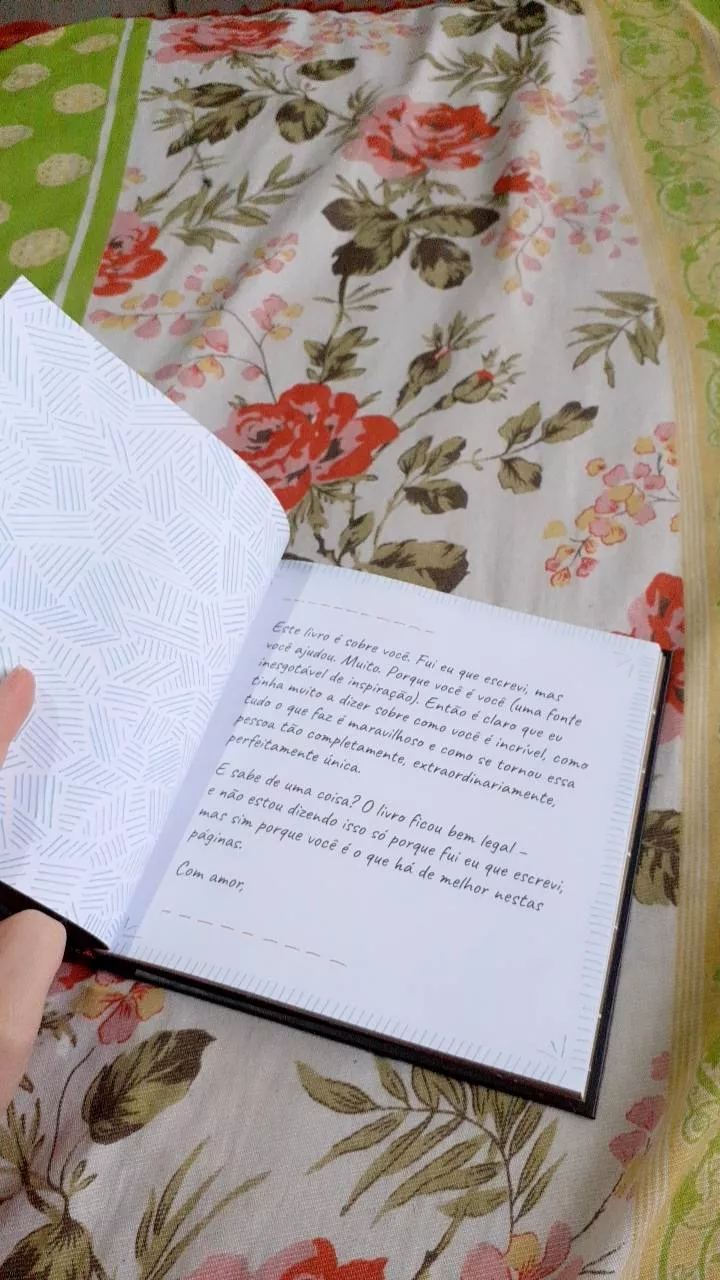 Este livro é sobre você. Fui eu que escrevi, mas
você ajudou. Muito. Porque você é você (uma fonte
inesgotável de inspiração). Então é claro que eu
tinha muito a dizer sobre como você é incrível, como
tudo o que faz é maravilhoso e como se tornou essa
pessoa tão completamente, extraordinariamente,
perfeitamente única.
E sabe de uma coisa? O livro ficou bem legal –
e não estou dizendo isso só porque fui eu que escrevi,
mas sim porque você é o que há de melhor nestas
páginas.
Com amor,